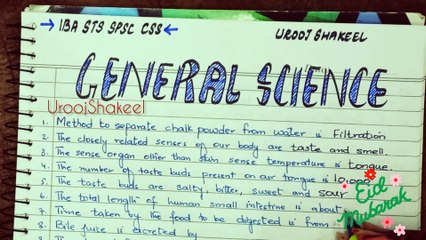 → IBA STS SPSC CSS ←
UROOJ SHAKEEL
GENERAL SCIENCE
UroojShakeel
1. Method to separate chalk powder from water is Filtration
2. The closely related senses of our body are taste and smell.
3. The sense organ other than skin sense temperature is tongue
4. The number of taste buds present on our tongue is 10,000
5. The taste buds are salty, bitter, sweet and sour
6. The total length of human small intestine is about
7. Time taken by the food to be digested is from
8. Bile juice is excreted by
Eid Mubarak